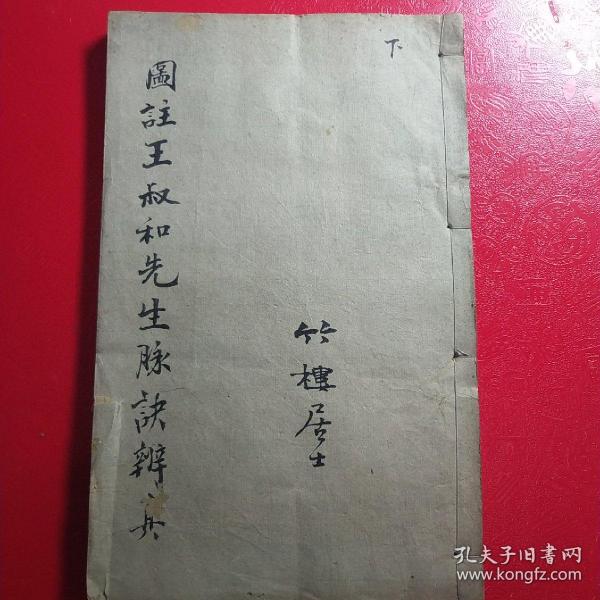 下
圖註王叔和先生脉訣辨真
竹樓居士
孔夫子旧书网
www.kongfz.com